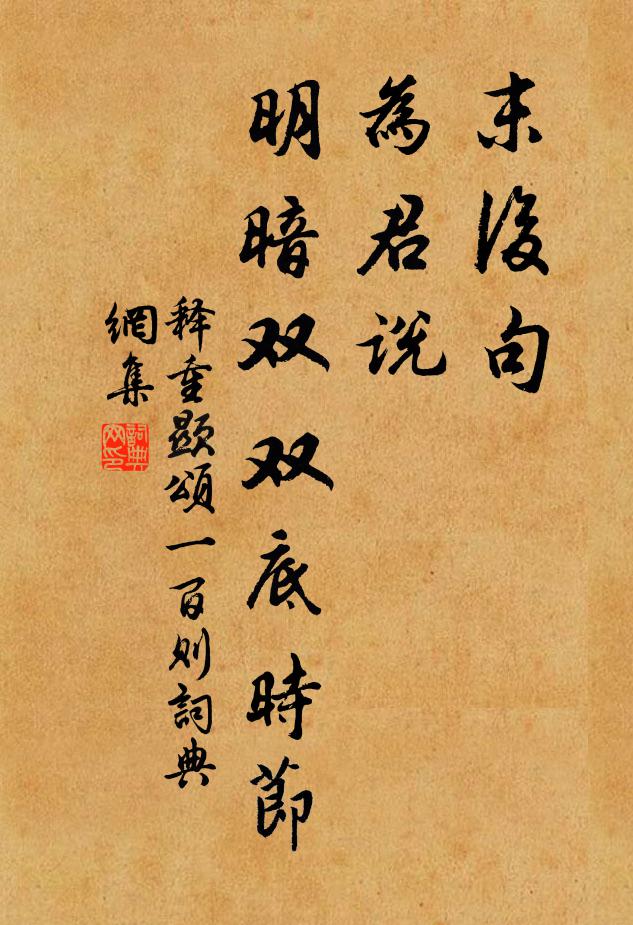 末後句
為君说
明暗双双底時節
释重顯頌一百则詞典
網集
詞典
网印